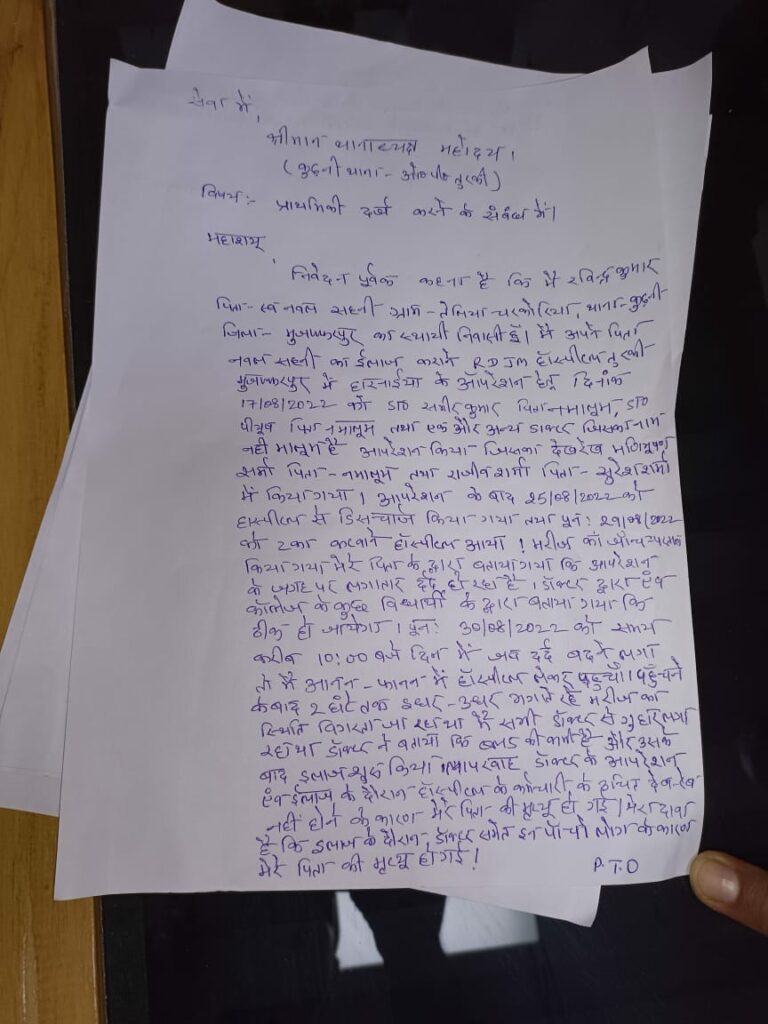 सेवा में,
श्रीमान थानाध्यक्ष महोदय।
(कुढ़नी थाना - ओ०पी० तुरकी)
विषय:- प्राथमिकी दर्ज करने के संबंध में।
महाशय,
निवेदन पूर्वक कहना है कि मैं रविन्द्र कुमार
पिता- स्व नवल सहनी ग्राम- तेलिया चरकोरिया, थाना- कुढ़नी
जिला- मुजफ्फरपुर का स्थायी निवासी हूँ। मैं अपने पिता
नवल सहनी का ईलाज कराने RDJM हॉस्पीटल तुरकी
मुजफ्फरपुर में हारनाईया के ऑपरेशन हेतु दिनांक
17/08/2022 को डा० समीर कुमार पिता नमालूम, डा०
पीयूष पिता नमालूम तथा एक और अन्य डाक्टर जिसका नाम
नहीं मालूम है आपरेशन किया जिसका देखरेख मणिभूषण
शर्मा पिता- नमालूम तथा राजीव शर्मा पिता- सुरेश शर्मा
में किया गया। आपरेशन के बाद 25/08/2022 को
हास्पीटल से डिसचार्ज किया गया तथा पून: 29/08/2022
को टका कटवाने हॉस्पीटल आया। मरीज का
किया गया मेरे पिता के द्वारा बताया गया कि आपरेशन
के जगह पर लगातार दर्द हो रहा है। डॉक्टर द्वारा एंव
कॉलेज के कुछ विधार्थी के द्वारा बताया गया कि
ठीक हो जायेगा। पून: 30/08/2022 को समय
करीब 10:00 बजे दिन में जब दर्द बढ़ने लगा
तो मैं आनन-फानन में हॉस्पीटल लेकर पहुचाँ। पहुँचने
के बाद 2 घंटे तक इधर-उधर भगाते रहे मरीज का
स्थिति बिगरता जा रहा था मैं सभी डॉक्टर से गुहार लगा
रहा था डॉक्टर ने बताया कि ब्लड की कमी है और उसके
बाद इलाज शुरु किया। लापरवाह डॉक्टर के आपरेशन
एंव ईलाज के दौरान हॉस्पीटल के कर्मचारी के उचित देख-रेख
नहीं होने के कारण मेरे पिता की मृत्यू हो गई। मेरा दावा
है कि इलाज के दौरान, डॉक्टर समेत इन पाँचो लोग के कारण
मेरे पिता की मृत्यू हो गई।
P.T.O